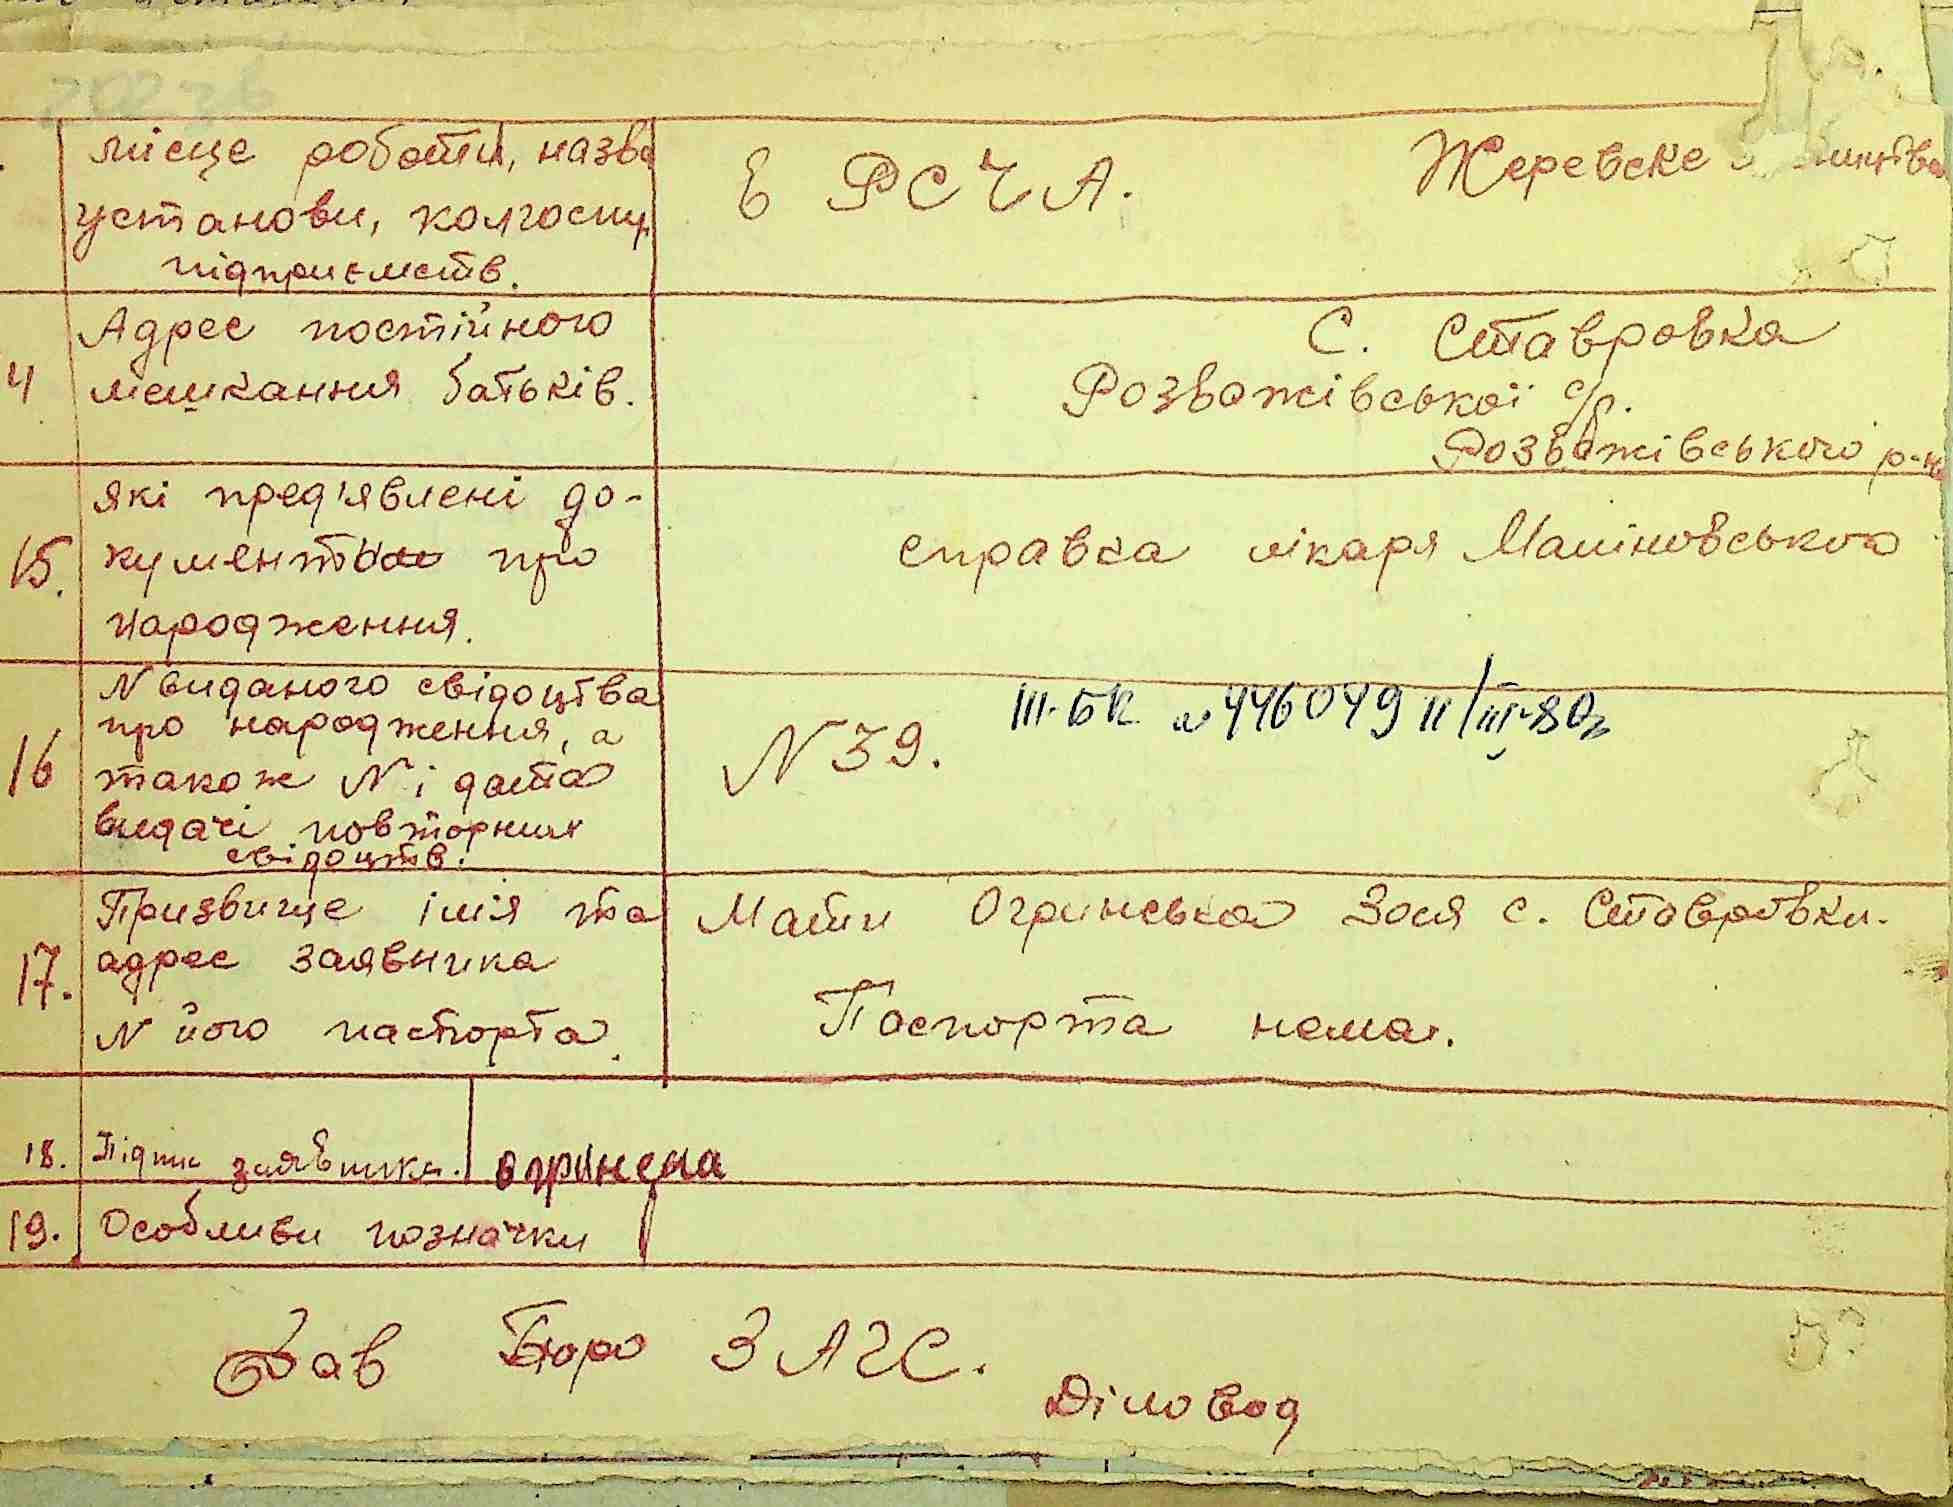 місце роботи, назва
установи, колгоспу,
підприємств.
в РСЧА.
Жеревске
4
Адрес постійного
мешкання батьків.
С. Ставровка
Розважівської с/р.
Розважівського р-н
15.
які пред'явлені до-
кументи про
народження.
справка лікаря Маліновського
16
N виданого свідоцтва
про народження, а
також N і дата
видачі повторних
свідоцтв.
N 39.
III-БК № 446049 11/III-80г
17.
Призвище ім'я та
адрес заявника
N його паспорта.
Мати Огринська Зося с. Ставровки.
Паспорта нема.
18.
Підпис заявника.
огринсна
19.
Особливи позначки
Зав Бюро ЗАГС.
Діловод